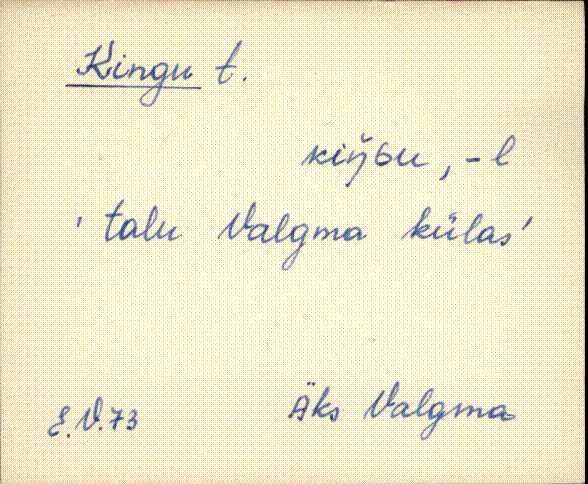 Kingu t.
kiŋ̆ɢu, -l
' talu Valgma külas'
E.V.73
Äks Valgma